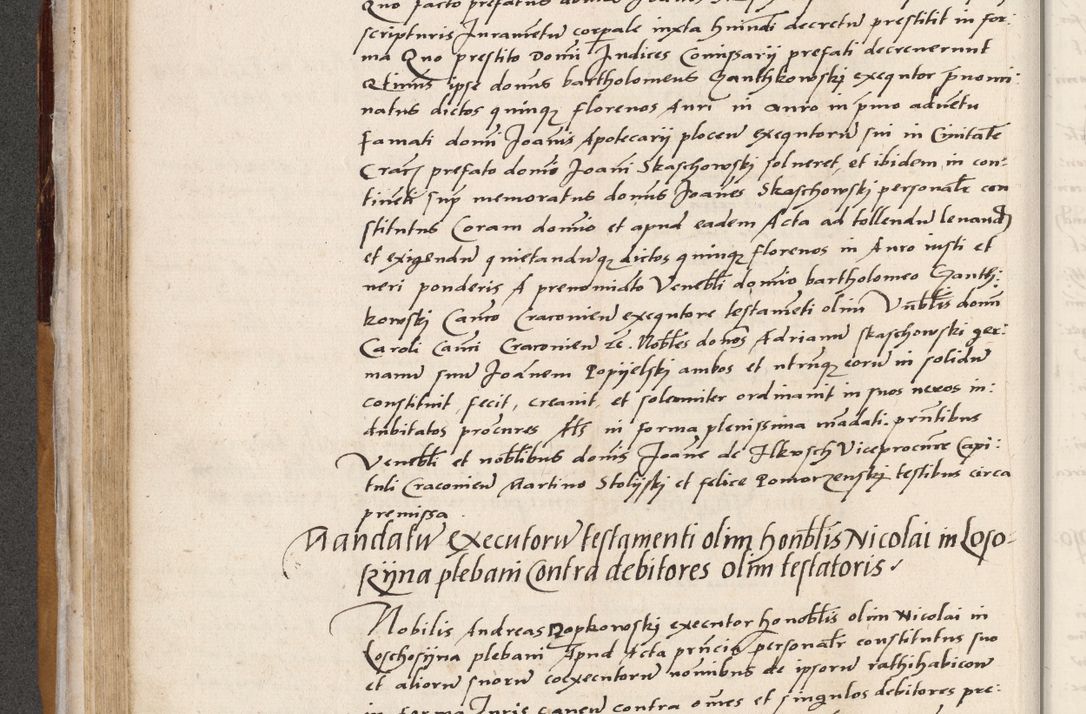 Quo facto prefatus domnus Joannes Skaschowski
scripturis Juramentu corpale iuxta huiusmodi decretu prestitit in for:
ma Quo prestito Domi Judices Comissarij prefati decreuerunt
Qtinus ipse domnus bartholomeus Ganthkowskj exeqtor pnomi:
natus dictos quinqz florenos Auri in auro in pmo aduetu
famati domi Joanis Apotecarij plocen exeqntoru sui in Ciuitate
Crac prefato domo Joani Skaschowskj solueret, et ibidem in con:
tineti sup memoratus domus Joanes Skaschowskj personalr con
stitutus Coram domio et apud eadem Acta ad tollendu leuand
et exigendu quietanduqz dictos quinqz florenos in Auro iusti et
ueri ponderis A prenomiato Venebli domio bartholomeo Ganth:
kowskj Canco Craconien exeqntore testameti olim Vnblis domi
Caroli Canci Craconien rc. Nobles domos Adrianu Skaschowskj ger:
manu suu Joanem Popijelskj ambos et utrunqz eoru in solidu
constituit, fecit, creauit, et solenniter ordinauit in suos ueros in:
dubitatos procures Ats in forma plenissima madati. prntibus
Venebli et noblibus domis Joane de Ilkusch Viceprocure Capi:
tuli Craconien Martino Stolijskj et felice Pomorzenskj testibus circa
premissa
Mandatu executoru testamenti olim honblis Nicolai in Loso-
kijna plebani Contra debitores olim testatoris
Nobilis Andreas Popkowskj executor honoblis olim Nicolai in
Loschosijna plebani Apud Acta prncia personalr constitutus suo
et alioru suoru coexecutoru nomibus de ipsoru rathihabicoe
in forma Juris cauen contra omes et singulos debitores pre: